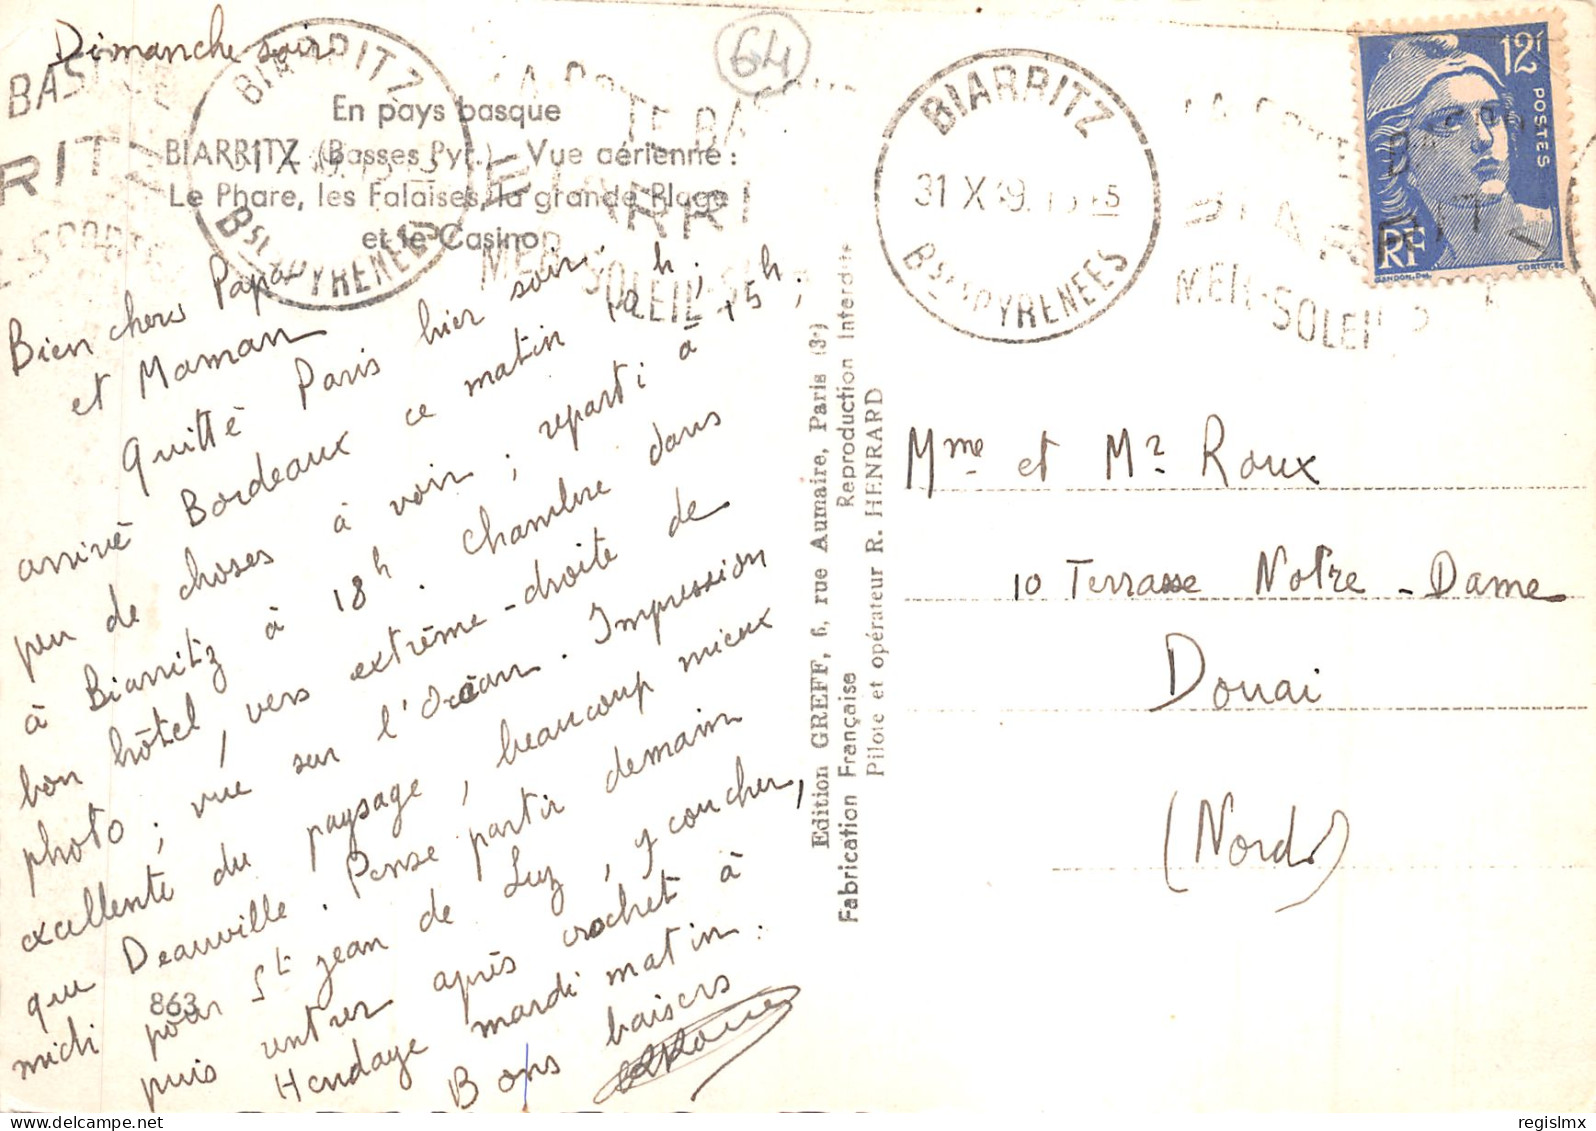 Dimanche soir
En pays basque
BIARRITZ (Basses Pyr.) - Vue aérienne :
Le Phare, les Falaises, la grande Plage
et le Casino
Bien chers Papa
et Maman
Quitté Paris hier soir,
arrivé Bordeaux ce matin h ;
peu de choses à voir ; reparti à 15h ;
à Biarritz à 18h. Chambre dans
bon hôtel, vers extrême-droite de
photo ; vue sur l'Océan. Impression
excellente du paysage, beaucoup mieux
que Deauville. Pense partir demain
midi pour St Jean de Luz, y coucher,
puis rentrer après crochet à
Hendaye mardi matin.
Bons baisers
863
64
BIARRITZ
31 X 49
Bses PYRENEES
BIARRITZ
31 X 49
Bses PYRENEES
LA COTE BASQUE
BIARRITZ
MER-SOLEIL-SPORTS
12f
POSTES
RF
GANDON. Del.
CORTOT. Sc.
Edition GREFF, 6, rue Aumaire, Paris (3e)
Fabrication Française Reproduction Interdite
Pilote et opérateur R. HENRARD
Mme et Mr Roux
10 Terrasse Notre-Dame
Douai
(Nord)
regislmx